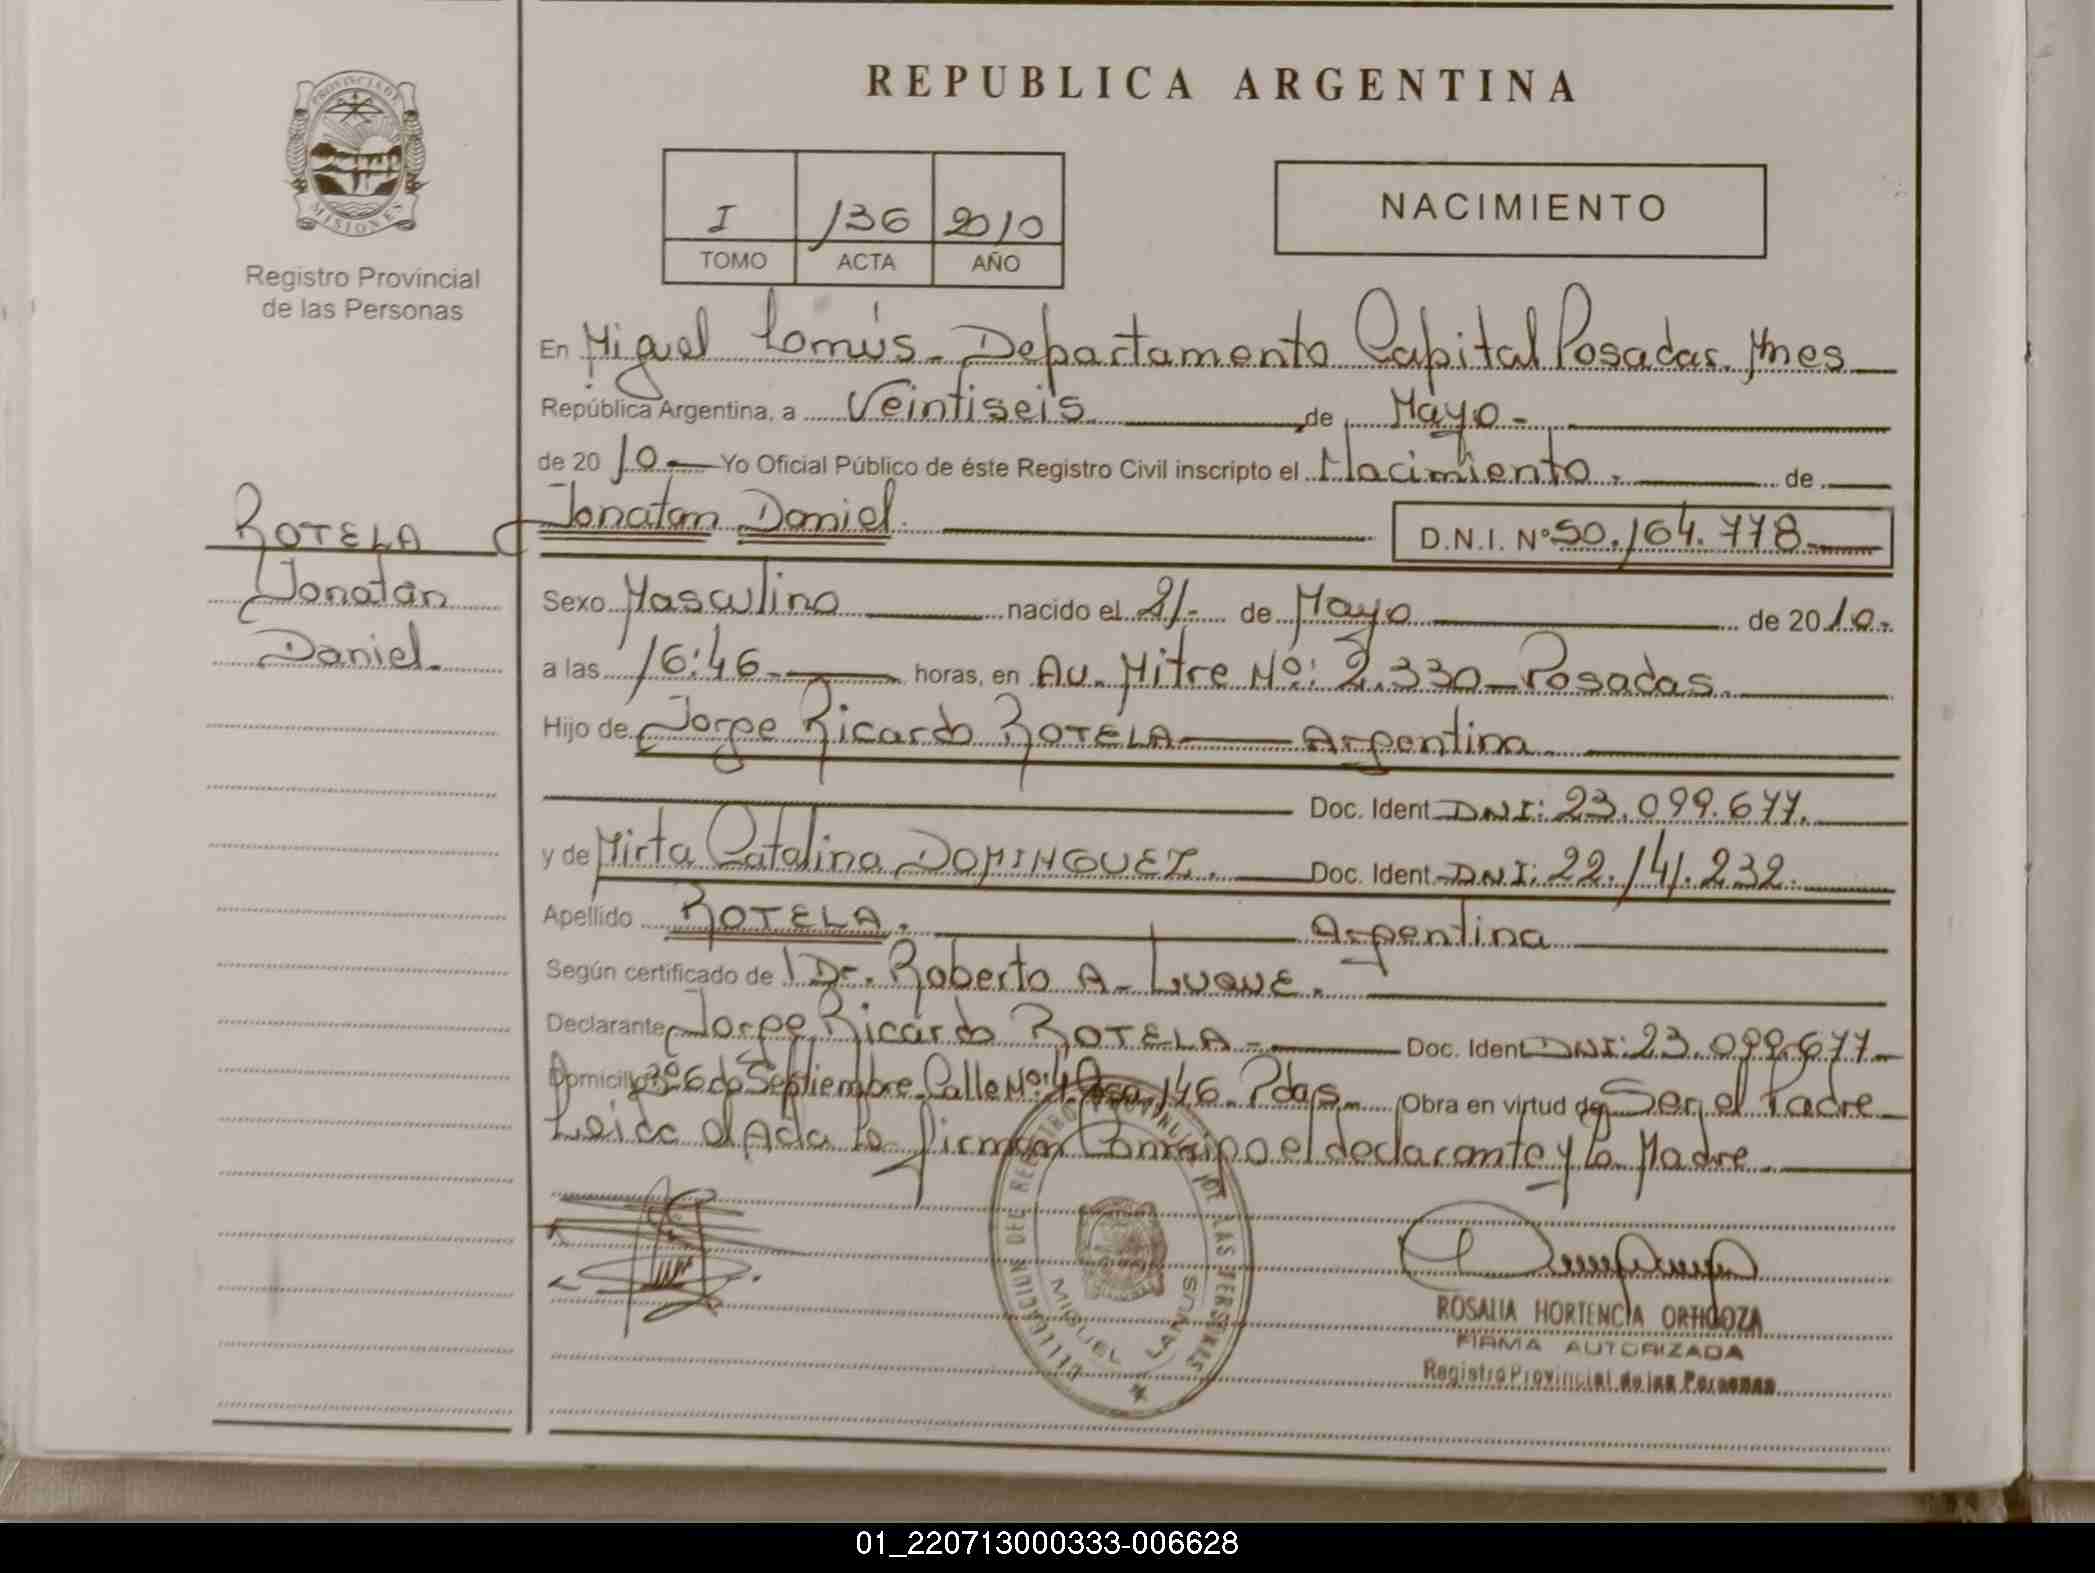 REPUBLICA ARGENTINA
PROVINCIA DE
MISIONES
Registro Provincial
de las Personas
I 136 2010
TOMO ACTA AÑO
NACIMIENTO
En Miguel Lanús - Departamento Capital Posadas Mnes
República Argentina, a Veintiseis de Mayo -
de 20 10 Yo Oficial Público de éste Registro Civil inscripto el Nacimiento. de
Jonatan Daniel. D.N.I. Nº 50.164.778
ROTELA
Jonatan
Daniel.
Sexo Masculino nacido el 21- de Mayo de 20 10.
a las 16:46 horas, en Av. Mitre Nº: 2.330 - Posadas.
Hijo de Jorge Ricardo ROTELA Argentina.
Doc. Ident. DNI: 23.099.677.
y de Mirta Catalina DOMINGUEZ. Doc. Ident. DNI: 22.141.232.
Apellido ROTELA. Argentina
Según certificado de Dr. Roberto A. Luque.
Declarante Jorge Ricardo ROTELA - Doc. Ident DNI: 23.099.677
Domicilio 6 de Septiembre Calle Nº: 146. Pdas. Obra en virtud de Ser el Padre
Leida el Acta la firman Conmigo el declarante y la Madre.
MIGUEL LANUS
DE LAS PERSONAS
ROSALIA HORTENCIA ORTIGOZA
FIRMA AUTORIZADA
Registro Provincial de las Personas
01_220713000333-006628